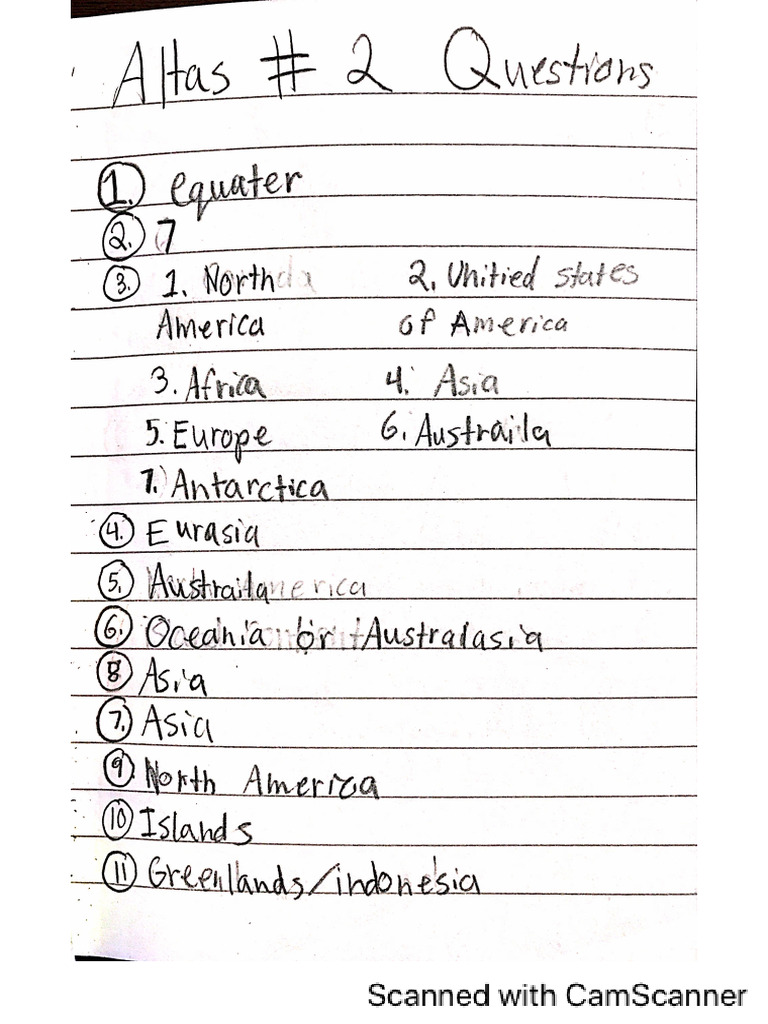 Altas # 2 Questions
1. equater
2. 7
3. 1. North 2. Unitied states
America of America
3. Africa 4. Asia
5. Europe 6. Austraila
7. Antarctica
4. Eurasia
5. Austraila
6. Oceania or Australasia
8 Asia
7. Asia
9 North America
10 Islands
11 Greenlands/indonesia
Scanned with CamScanner